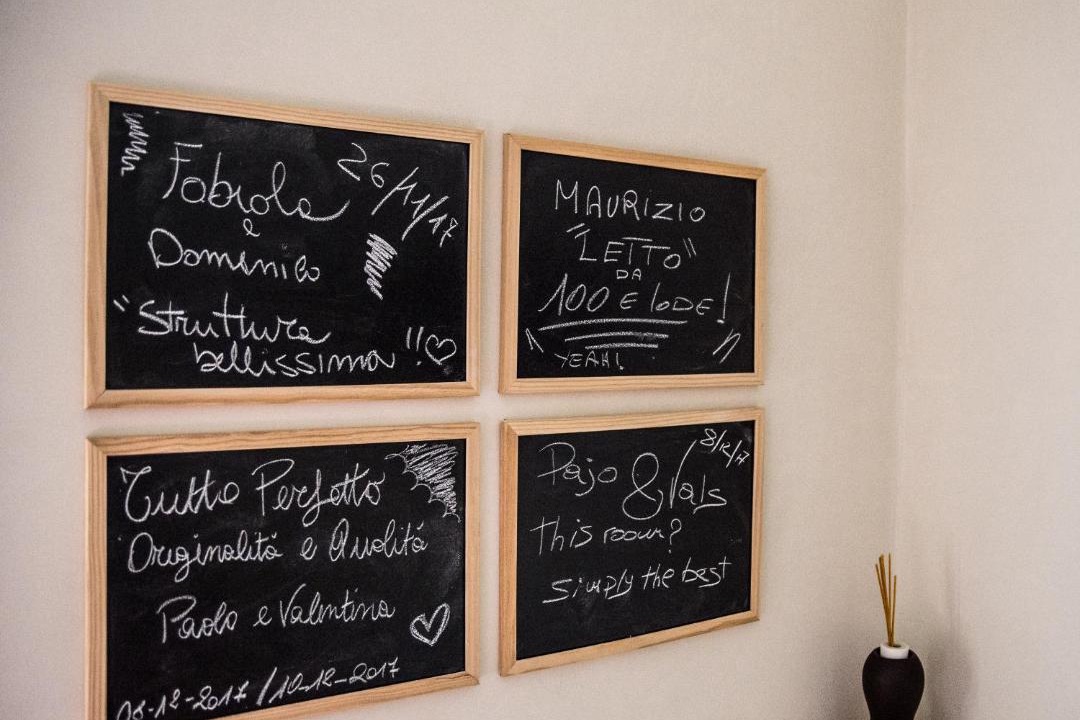 Fabiola
26/11/17
e
Domenico
"Struttura
bellissima"!!
MAURIZIO
"LETTO"
DA
100 E LODE!
YEAH!
Tutto Perfetto
Originalità e Qualità
Paolo e Valentina
08-12-2017/10-12-2017
8/12/17
Pajo & Vals
this room?
simply the best